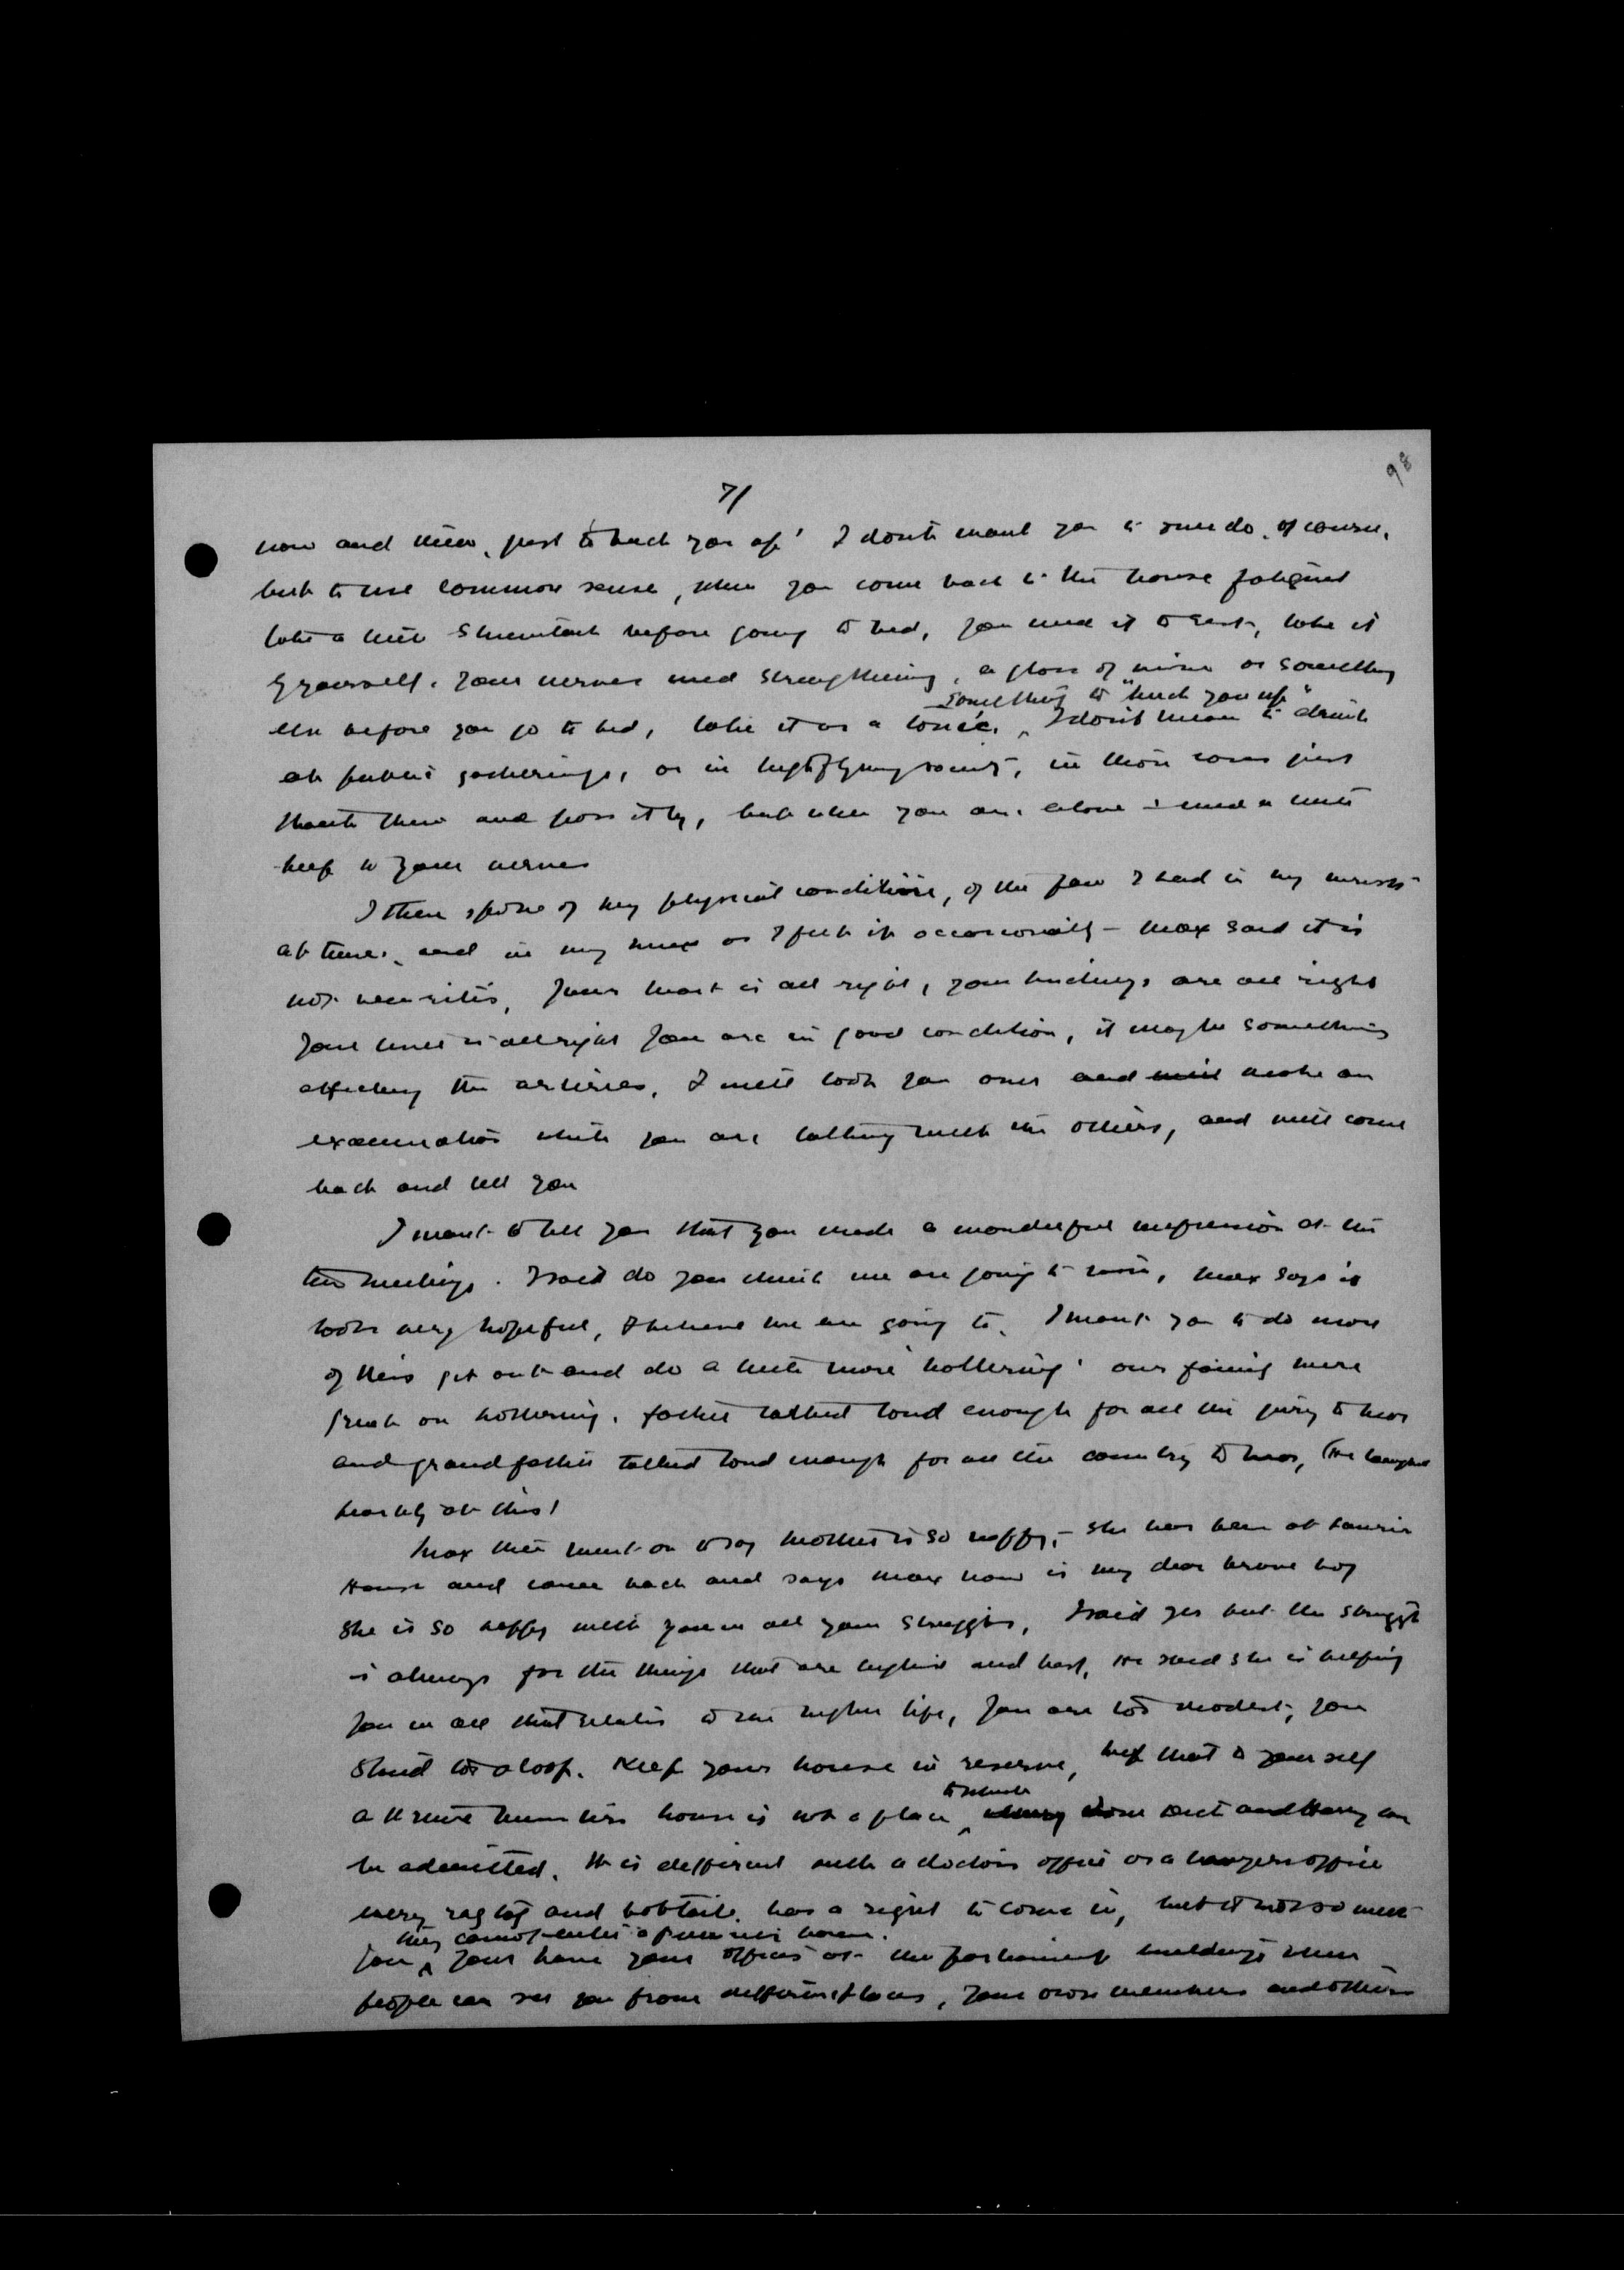 98
7/
now and then, just to buck you up' I don't want you to overdo, of course,
but to use common sense, when you come back to the house fatigued
take a little stimulant before going to bed, you need it to rest, take it
yourself. Your nerves need strengthening, a glass of wine or something
something to "buck you up"
else before you go to bed, take it as a tonic. I don't mean to drink
at public gatherings, or in highflying society, in those cases just
thank them and pass it by, but when you are alone & need a little
help to your nerves
I then spoke of my physical condition, of the pain I had in my wrists
at times, and in my knee as I felt it occasionally - Max said it is
not neuritis, your heart is all right, your kidneys are all right
your liver is all right you are in good condition, it may be something
affecting the arteries. I will look you over and will make an
examination while you are talking with the others, and will come
back and tell you
I want to tell you that you made a wonderful impression at the
two meetings. I said do you think we are going to win, Max says it
looks very hopeful, I believe we are going to. I want you to do more
of this get out and do a little more 'hollering' our family were
great on hollering. Father talked loud enough for all the jury to hear
and grandfather talked loud enough for all the country to hear, (He laughed
heartily at this)
Max then went on to say Mother is so happy, - she has been at Laurier
House and came back and says Max how is my dear brave boy
She is so happy with you in all your struggles, I said yes but the struggle
is always for the things that are highest and best, He said she is helping
you in all that relates to the higher life, you are too modest, you
stand too aloof. Keep your house in reserve, keep that to yourself
a Prime Ministers house is not a place to which Tom Dick and Harry can
be admitted. It is different with a doctors office or a lawyers office
every rag tag and bobtail has a right to come in, but it is not so with
they cannot enter a premiers home.
you, you have your offices at the parliament buildings where
people can see you from different places, your own members and others